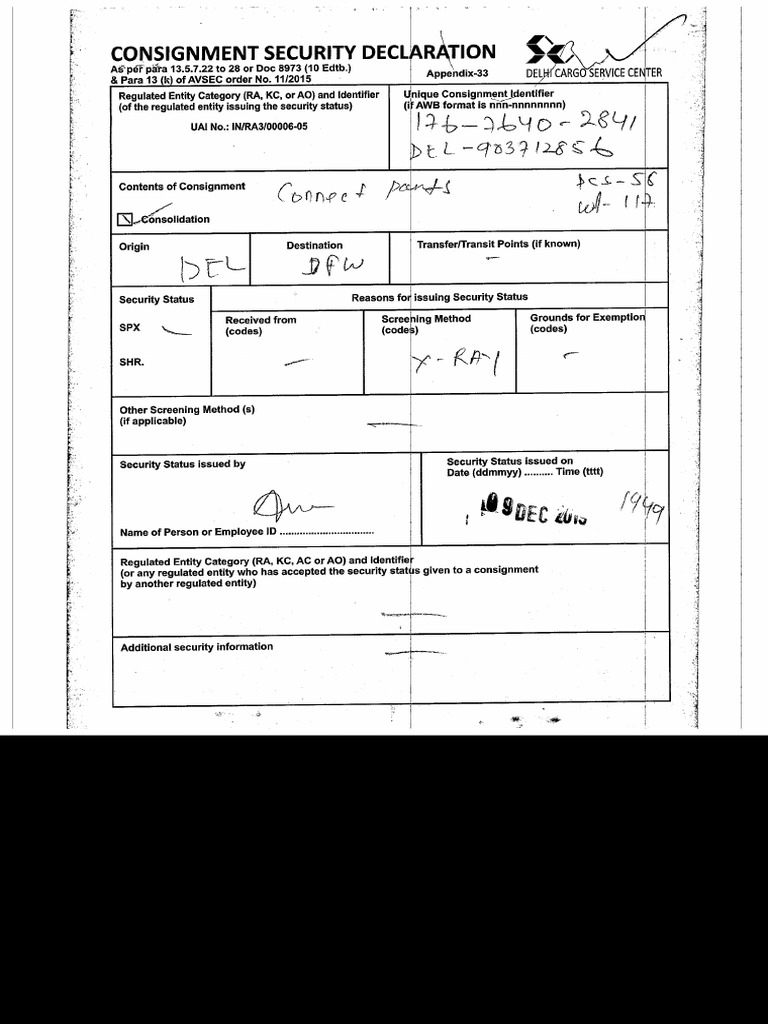 CONSIGNMENT SECURITY DECLARATION
As per para 13.5.7.22 to 28 or Doc 8973 (10 Edtb.)
& Para 13 (k) of AVSEC order No. 11/2015
Appendix-33
DELHI CARGO SERVICE CENTER
Regulated Entity Category (RA, KC, or AO) and Identifier
(of the regulated entity issuing the security status)
UAI No.: IN/RA3/00006-05
Unique Consignment Identifier
(if AWB format is nnn-nnnnnnnn)
176-7640-2841
DEL-903712856
Contents of Consignment
Connect parts
pcs-56
wt-117
Consolidation
Origin
DEL
Destination
DFW
Transfer/Transit Points (if known)
-
Security Status
Reasons for issuing Security Status
SPX
SHR.
Received from
(codes)
-
Screening Method
(codes)
X-RAY
Grounds for Exemption
(codes)
-
Other Screening Method (s)
(if applicable)
-
Security Status issued by
Name of Person or Employee ID ..................................
Security Status issued on
Date (ddmmyy) .......... Time (tttt)
09 DEC 2015
1949
Regulated Entity Category (RA, KC, AC or AO) and Identifier
(or any regulated entity who has accepted the security status given to a consignment
by another regulated entity)
-
Additional security information
-